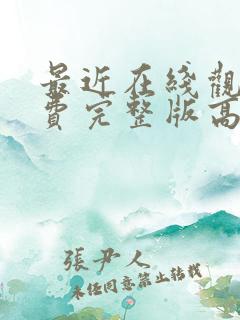 最近在线觀
费完整版高
張尹人
未经同意禁止转载